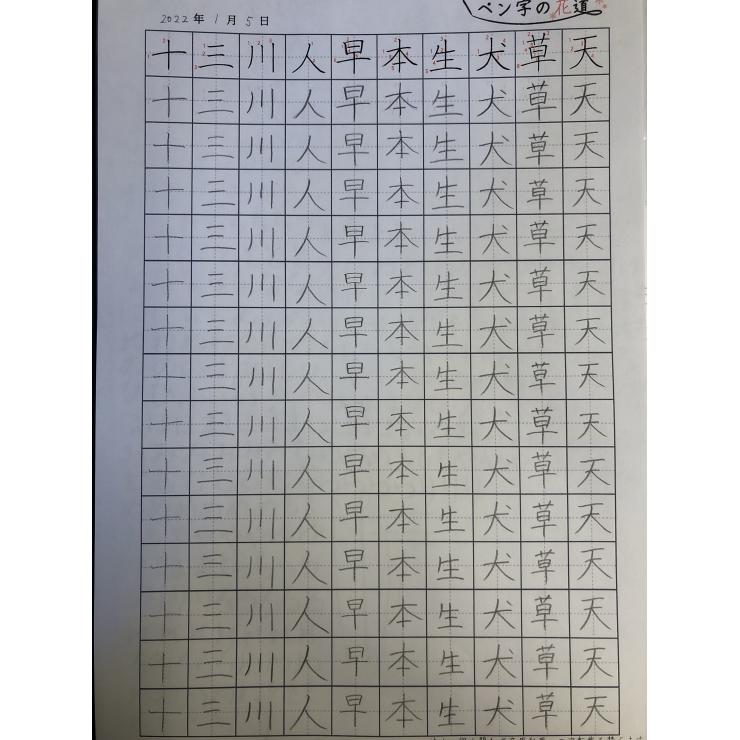 ペン字の花道
2022年1月5日
十三川人早本生犬草天
十三川人早本生犬草天
十三川人早本生犬草天
十三川人早本生犬草天
十三川人早本生犬草天
十三川人早本生犬草天
十三川人早本生犬草天
十三川人早本生犬草天
十三川人早本生犬草天
十三川人早本生犬草天
十三川人早本生犬草天
十三川人早本生犬草天
十三川人早本生犬草天
十三川人早本生犬草天
十三川人早本生犬草天